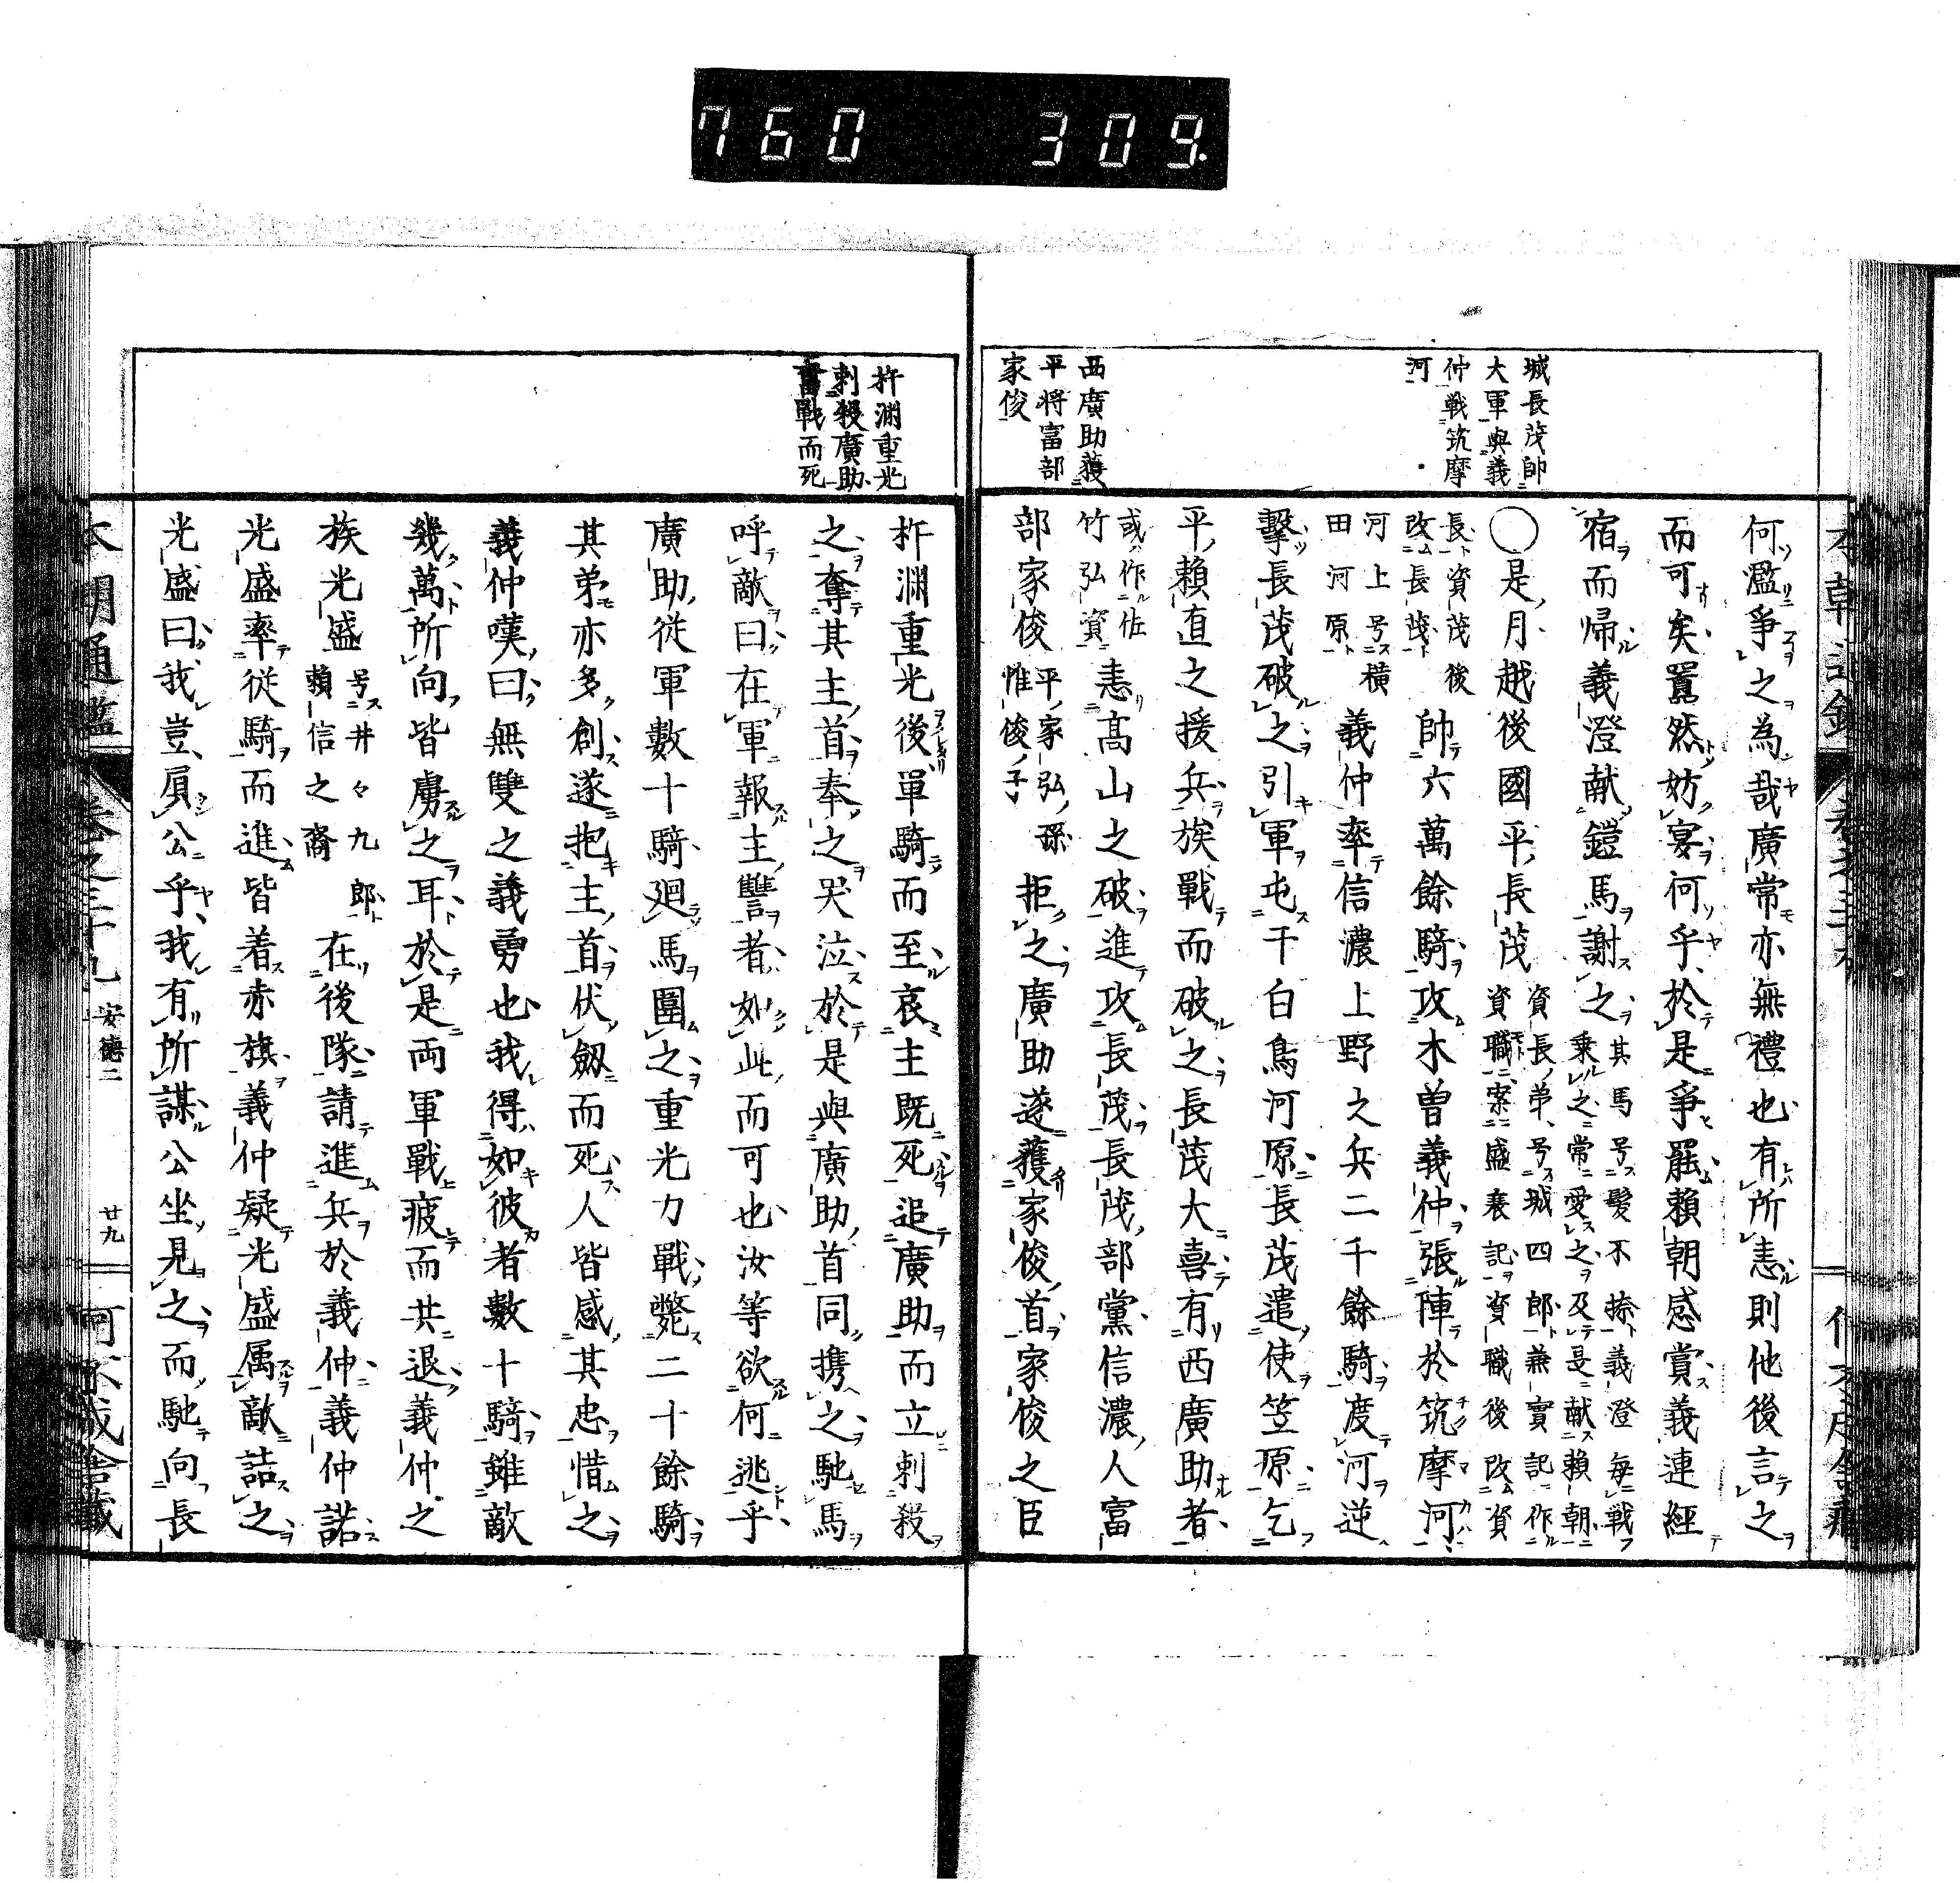 760 309.
城長茂帥
大軍與義
仲戰筑摩
河
西廣助獲
平將富部
家俊
何濫爭之為哉廣常亦無禮也有所恚則他後言之
而可矣囂然妨宴何乎於是爭罷賴朝感賞義連經
宿而歸義澄献鎧馬謝之其馬号髮不撩義澄每戰
乘之常愛之及是献賴朝
○是月越後國平長茂資長弟号城四郎兼實記作
資職案盛衰記資職後改資
長資茂後
改長茂帥六萬餘騎攻木曽義仲張陣於筑摩河
河上号橫
田河原義仲率信濃上野之兵二千餘騎度河逆
擊長茂破之引軍屯千白鳥河原長茂遣使笠原乞
平賴直之援兵族戰而破之長茂大喜有西廣助者
或作佐
竹弘資恚高山之破進攻長茂長茂部黨信濃人富
部家俊平家弘孫
惟俊子拒之廣助遂獲家俊首家俊之臣
杵渊重光
刺殺廣助
奮戰而死
杵渊重光後單騎而至哀主既死追廣助而立刺殺
之奪其主首奉之哭泣於是與廣助首同携之馳馬
呼敵曰在軍報主讐者如此而可也汝等欲何逃乎
廣助從軍數十騎廻馬圍之重光力戰斃二十餘騎
其弟亦多創遂抱主首伏劔而死人皆感其忠惜之
義仲嘆曰無雙之義勇也我得如彼者數十騎雖敵
幾萬所向皆虜之耳於是両軍戰疲而共退義仲之
族光盛号井々九郎
賴信之裔在後隊請進兵於義仲義仲諾
光盛率従騎而進皆着赤旗義仲疑光盛属敵詰之
光盛曰我豈負公乎我有所謀公坐見之而馳向長
本朝通鑑
卷之三十九 安德二
廿九